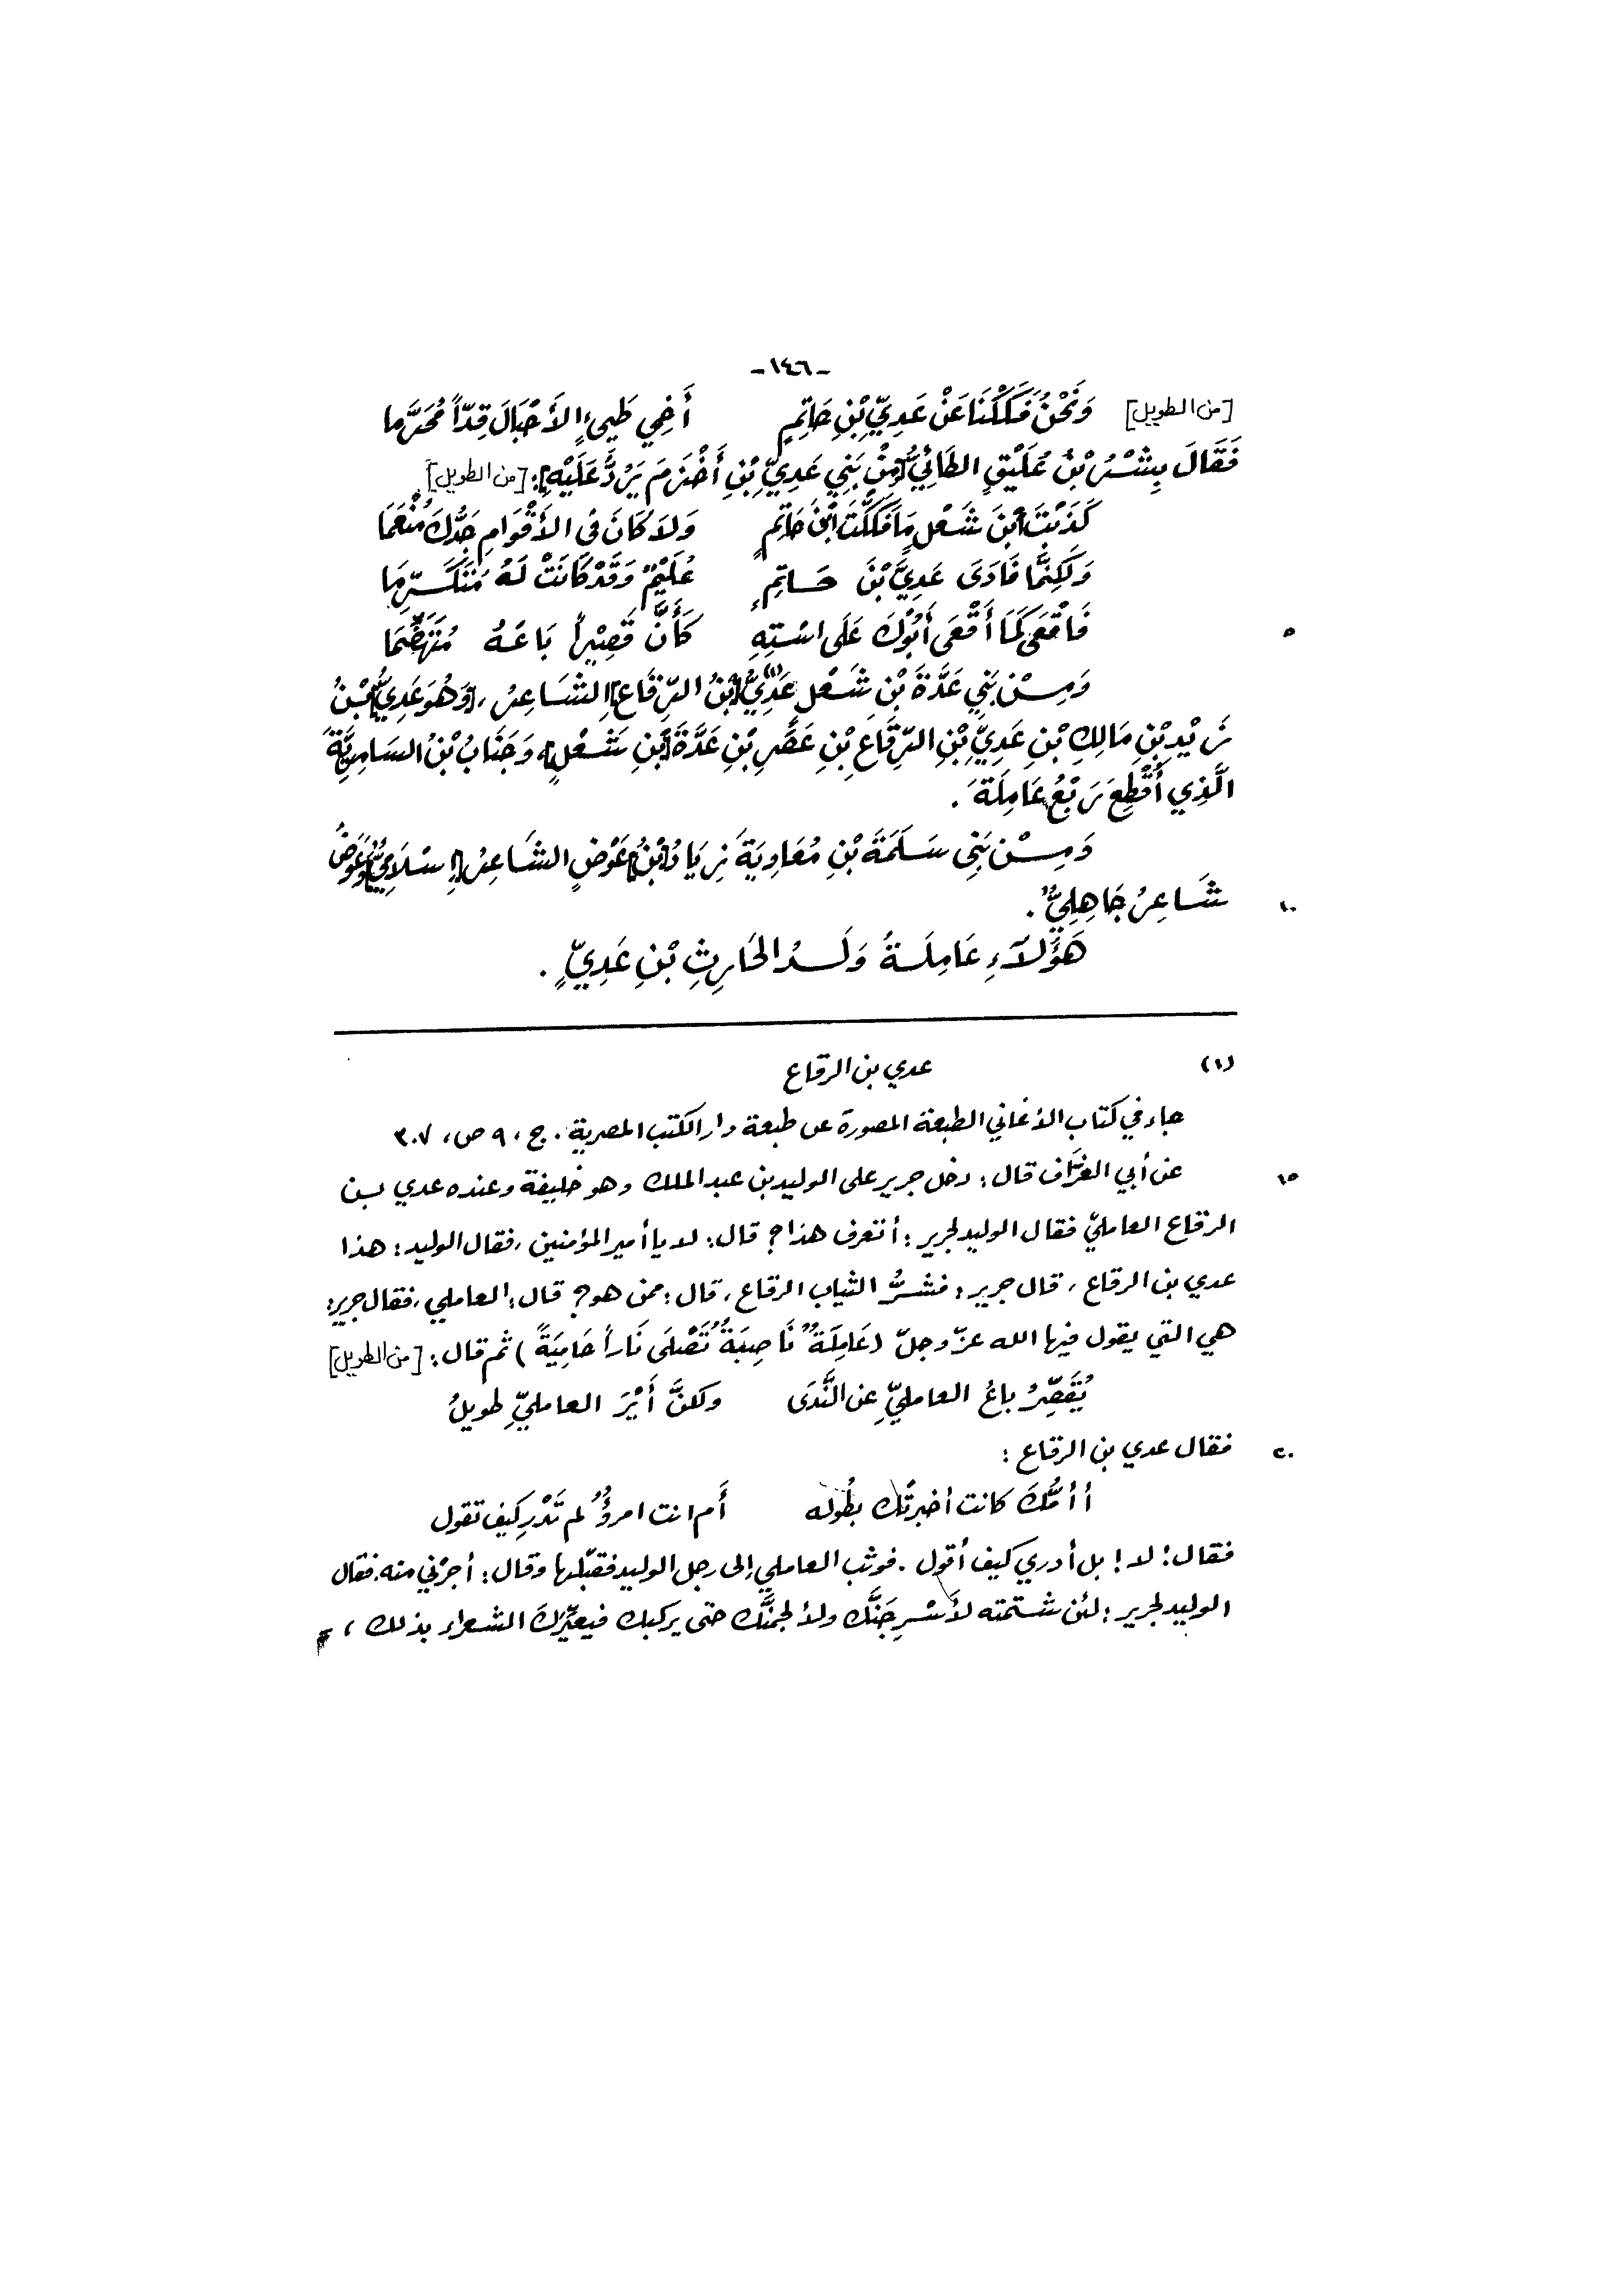 -١٤٦-
[من الطويل] وَنَحْنُ فَكَكْنَا عَنْ عَدِيِّ بْنِ حَاتِمٍ أَخِي طَيِّءِ الأَجْبَالَ قِدّاً مُحَرَّمَا
فَقَالَ بِشْرُ بْنُ عُلَيْقٍ الطَائِيُّ [مِنْ بَنِي عَدِيِّ بْنِ أَخْزَمَ يَرُدُّ عَلَيْهِ]: [من الطويل]
كَذَبْتَ ابْنَ شَعْلٍ مَا فَكَكْتَ ابْنَ حَاتِمٍ وَلاَ كَانَ في الأَقْوَامِ جَدُّكَ مُنْعِمَا
وَلَكِنَّمَا فَادَى عَدِيَّ بْنَ حَاتِمٍ عُلَيْمٌ وَقَدْ كَانَتْ لَهُ مُتَنَكَّرَمَا
٥ فَاقْعَى كَمَا أَقْعَى أَبُوكَ عَلَى اسْتِهِ كَأَنَّ قَصِيْراً بَاعَهُ مُتَهَضِّمَا
وَمِنْ بَنِي عَدَّةَ بْنِ شَعْلٍ عَدِيُّ(١) [بْنُ الرِّقَاعِ] الشَاعِرُ، [وَهُوَ عَدِيُّ] بْنُ
زَيْدِ بْنِ مَالِكِ بْنِ عَدِيِّ بْنِ الرِّقَاعِ بْنِ عَصَرِ بْنِ عَدَّةَ [بْنِ شَعْلٍ]، وَجَنَابُ بْنُ السَامِرِيَّةِ
الَّذِي أُقْطِعَ رَبْعَ عَامِلَةَ.
وَمِنْ بَنِي سَلَمَةَ بْنِ مُعَاوِيَةَ زِيَادُ [بْنُ] عَوْضٍ الشَاعِرُ [إِسْلَامِيٌّ] وَعَوْضُ
١٠ شَاعِرٌ جَاهِلِيٌّ.
هَؤُلَآءِ عَامِلَةُ وَلَدُ الحَارِثِ بْنِ عَدِيٍّ.
(١) عدي بن الرقاع
جاء في كتاب الأغاني الطبعة المصورة عن طبعة دار الكتب المصرية. ج، ٩ ص، ٣٠٧
١٥ عن أبي الغرّاف قال: دخل جرير على الوليد بن عبد الملك وهو خليفة وعنده عدي بن
الرقاع العامليّ فقال الوليد لجرير: أتعرف هذا؟ قال: لا يا أمير المؤمنين، فقال الوليد: هذا
عدي بن الرقاع، قال جرير: فشرُّ الثياب الرقاع، قال: ممن هو؟ قال: العاملي، فقال جرير:
هي التي يقول فيها الله عزّ وجلّ (عَامِلَةٌ نَاصِبَةٌ تَصْلَى نَاراً حَامِيَةً) ثم قال: [من الطويل]
يُقَصِّرُ باعُ العامليِّ عن النَّدَى ولكنَّ أَيْرَ العامليِّ طويلُ
٢٠ فقال عدي بن الرقاع:
أأمُّكَ كانت أخبرتْك بطُوله أَم انت امرؤٌ لم تَدْرِ كيف تقول
فقال: لا! بل أدري كيف أقول. فوثب العاملي إلى رجل الوليد فقبّلها وقال: أجرْني منه. فقال
الوليد لجرير: لئن شتمته لأُسْرِجَنَّك ولألجمنَّك حتى يركبك فيعيّرك الشعراء بذلك،